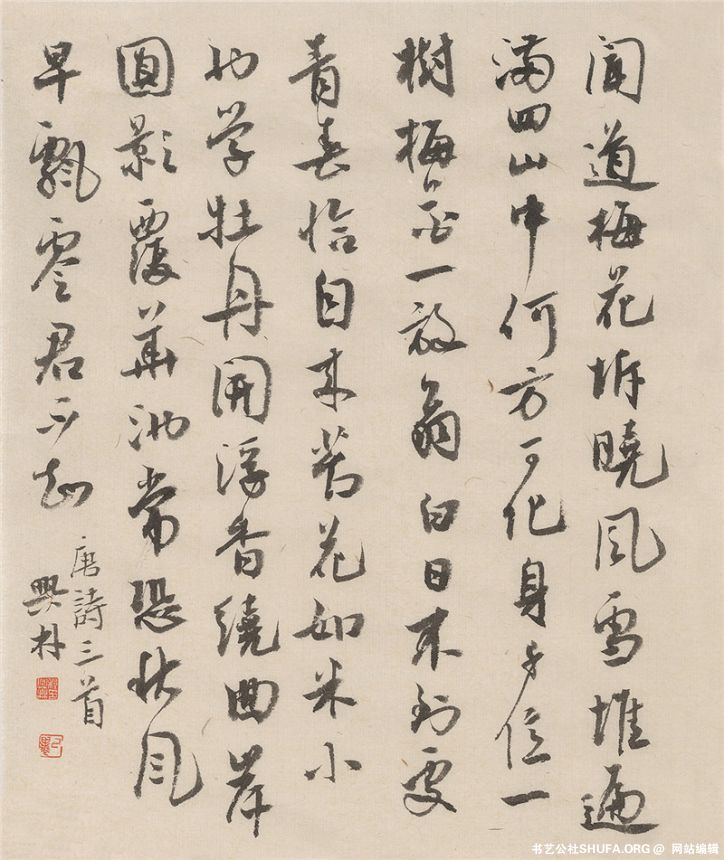 聞道梅花坼曉風雪堆遍
滿四山中何方可化身千億一
樹梅前一放翁白日不到處
青春恰自來苔花如米小
也学牡丹開浮香繞曲岸
圓影覆華池常恐秋風
早飄零君不知
唐詩三首
書艺公社SHUFA.ORG @ 网站编辑